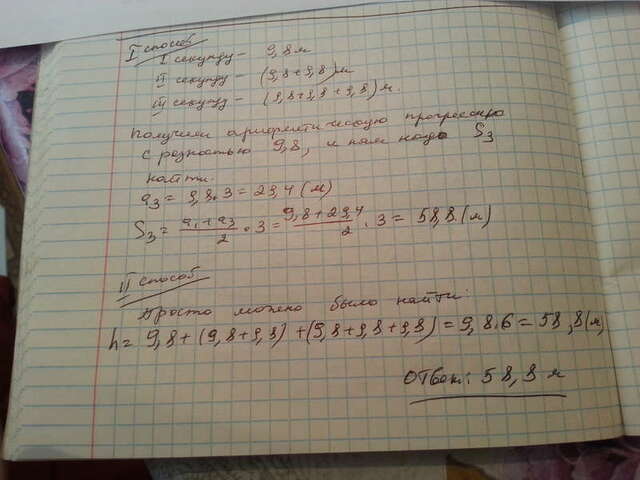 I способ
I секунду - 9,8 м
II секунду - (9,8+9,8) м
III секунду - (9,8+9,8+9,8) м.
Получили арифметическую прогрессию
с разностью 9,8, и нам надо S₃
найти.
a₃ = 9,8·3 = 29,4 (м)
S₃ = (a₁+a₃)/2 · 3 = (9,8+29,4)/2 · 3 = 58,8 (м)
II способ
Просто можно было найти:
h = 9,8+(9,8+9,8)+(9,8+9,8+9,8) = 9,8·6 = 58,8 (м)
Ответ: 58,8 м